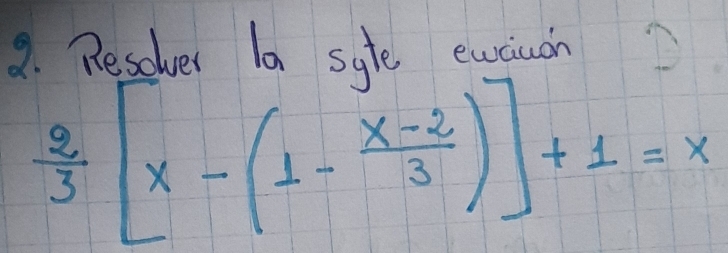 2. Resolver la sgte ecuación
2/3 [x - (1 - (x-2)/3)] + 1 = x